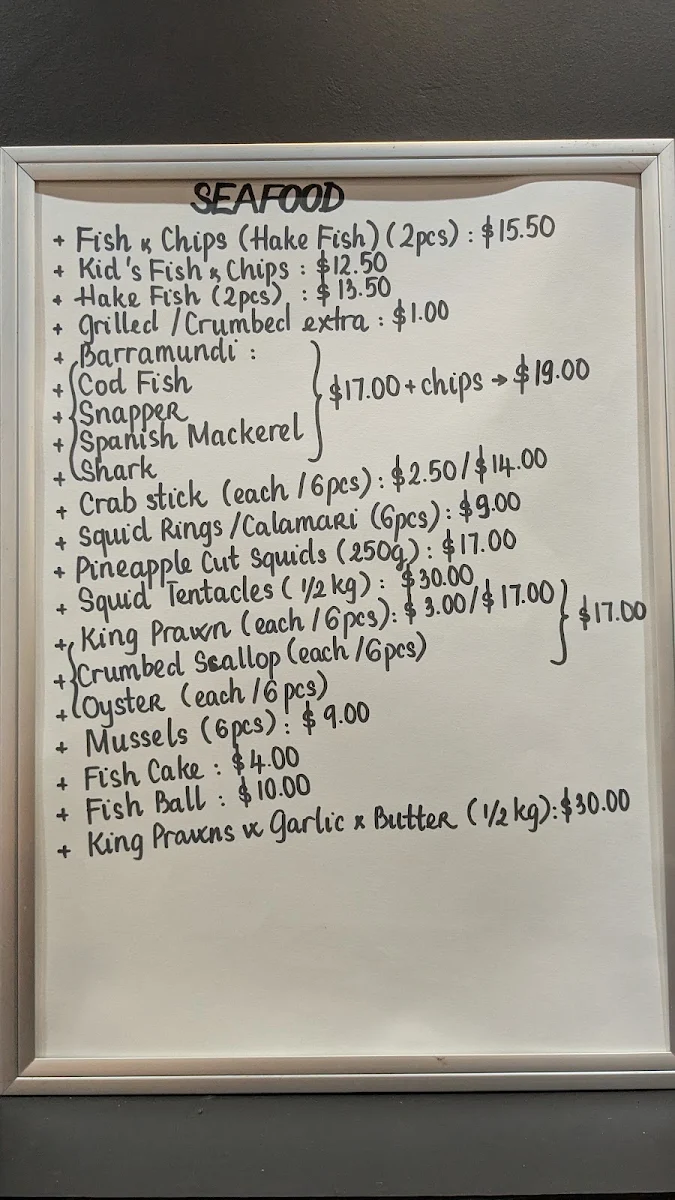 SEAFOOD
+ Fish & Chips (Hake Fish) (2pcs) : $15.50
+ Kid's Fish & Chips : $12.50
+ Hake Fish (2pcs) : $13.50
+ Grilled / Crumbed extra : $1.00
+ Barramundi :
+ Cod Fish
+ Snapper } $17.00 + chips → $19.00
+ Spanish Mackerel
+ Shark
+ Crab stick (each / 6pcs) : $2.50 / $14.00
+ Squid Rings / Calamari (6pcs) : $9.00
+ Pineapple Cut Squids (250g) : $17.00
+ Squid Tentacles (1/2 kg) : $30.00
+ King Prawn (each / 6pcs) : $3.00 / $17.00 } $17.00
+ Crumbed Scallop (each / 6pcs)
+ Oyster (each / 6 pcs)
+ Mussels (6pcs) : $9.00
+ Fish Cake : $4.00
+ Fish Ball : $10.00
+ King Prawns w Garlic & Butter (1/2 kg) : $30.00